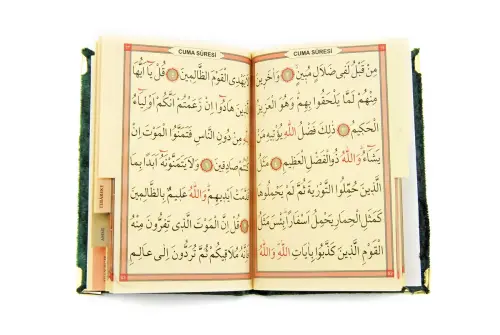 CUMA SÛRESİ
مِنْ قَبْلُ لَفِى ضَلَالٍ مُبِينٍ وَاٰخَرِينَ
مِنْهُمْ لَمَّا يَلْحَقُوا بِهِمْ وَهُوَ الْعَزِيزُ
الْحَكِيمُ ذٰلِكَ فَضْلُ اللّٰهِ يُؤْتِيهِ مَنْ
يَشَاءُ وَاللّٰهُ ذُوالْفَضْلِ الْعَظِيمِ مَثَلُ
الَّذِينَ حُمِّلُوا التَّوْرٰيةَ ثُمَّ لَمْ يَحْمِلُوهَا
كَمَثَلِ الْحِمَارِ يَحْمِلُ اَسْفَارًا بِئْسَ مَثَلُ
الْقَوْمِ الَّذِينَ كَذَّبُوا بِاٰيَاتِ اللّٰهِ وَاللّٰهُ
CUMA SÛRESİ
لَا يَهْدِى الْقَوْمَ الظَّالِمِينَ قُلْ يَا اَيُّهَا
الَّذِينَ هَادُوا اِنْ زَعَمْتُمْ اَنَّكُمْ اَوْلِيَاءُ
مِنْ دُونِ النَّاسِ فَتَمَنَّوُا الْمَوْتَ اِنْ
كُنْتُمْ صَادِقِينَ وَلَا يَتَمَنَّوْنَهُ اَبَدًا بِمَا
قَدَّمَتْ اَيْدِيهِمْ وَاللّٰهُ عَلِيمٌ بِالظَّالِمِينَ
قُلْ اِنَّ الْمَوْتَ الَّذِى تَفِرُّونَ مِنْهُ
فَاِنَّهُ مُلَاقِيكُمْ ثُمَّ تُرَدُّونَ اِلٰى عَالِمِ